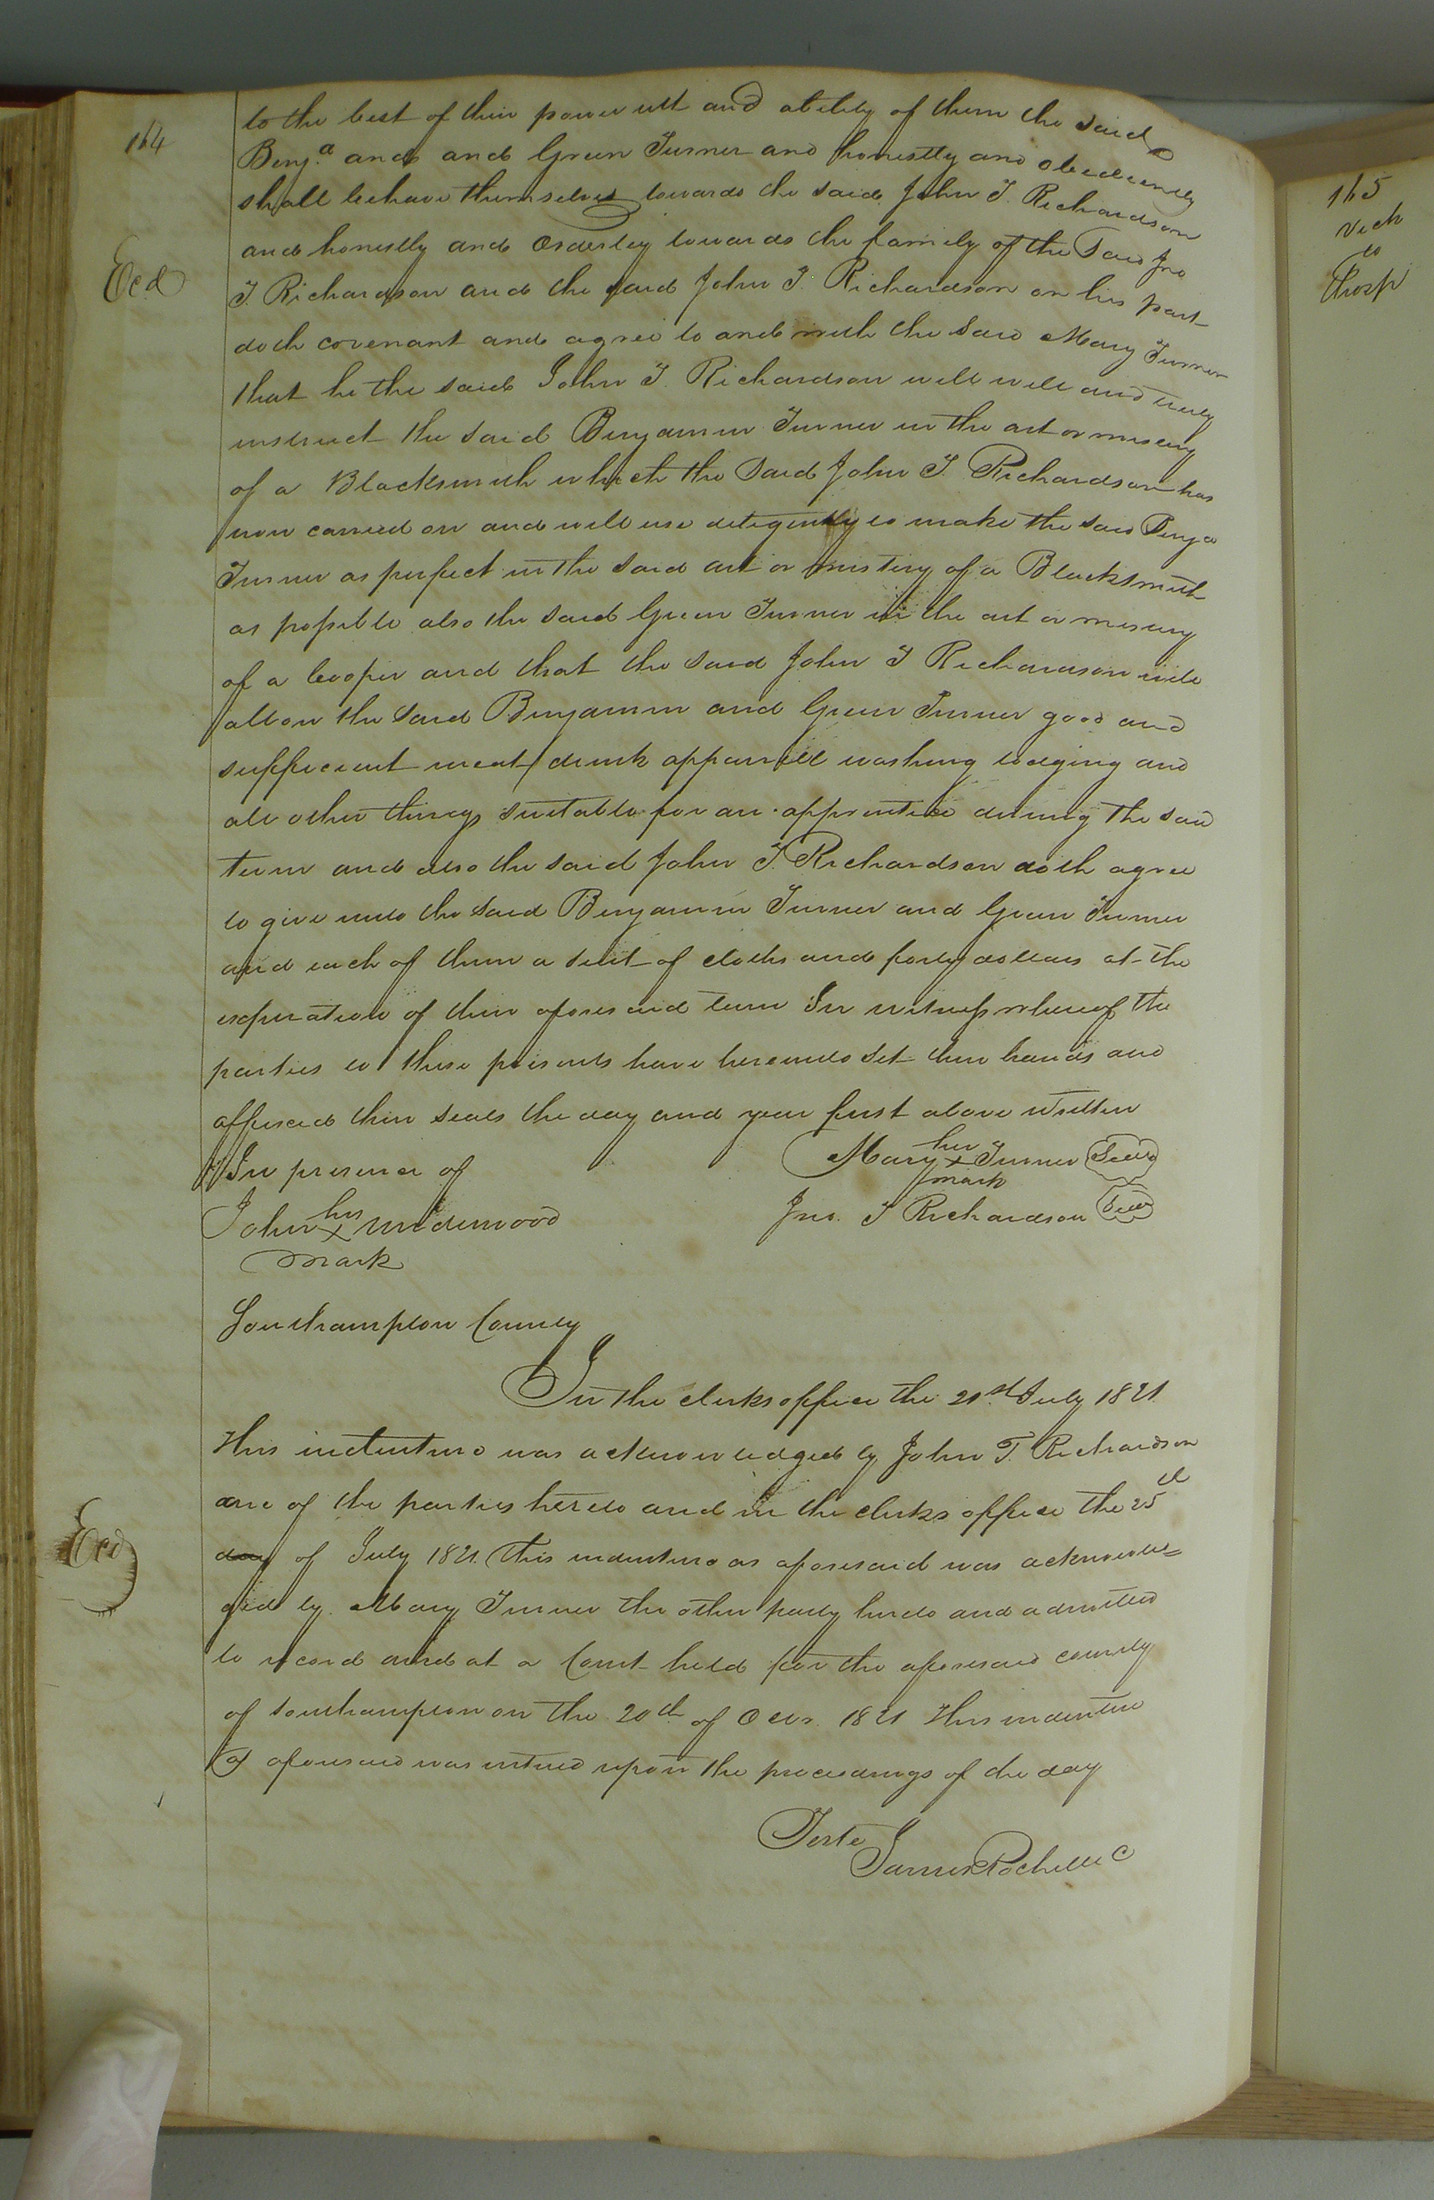 164
to the best of their power witt and ability of them the said
Benja and and Green Turner and honestly and obediently
shall behave themselves towards the said John T. Richardson
and honestly and Orderley towards the family of the Said Jno
Exd
T. Richardson and the said John T. Richardson on his part
doth covenant and agree to and with the said Mary Turner
that he the said John T. Richardson will will and truly
instruct the said Benjamin Turner in the art or mistery
of a Blacksmith which the said John T. Richardson has
now carried on and will use diligently to make the said Benja
Turner as perfect in the said art or mistery of a Blacksmith
as possible also the said Green Turner in the art or mistery
of a Cooper and that the said John T Richardson will
allow the said Benjamin and Green Turner good and
sufficient meat drink apparrell washing lodging and
all other things suitable for an apprentice during the said
term and also the said John T. Richardson doth agree
to give unto the said Benjamin Turner and Green Turner
and each of them a suit of cloths and forty dollars at the
expiration of their aforesaid term In witness whereof the
parties to these presents have hereunto set their hands and
affixed their seals the day and year first above written
In presence of
Mary her x mark Turner Seal
John his x mark Underwood
Jno. T Richardson Seal
Southampton County
In the clerks office the 21st July 1821
This indenture was acknowledged by John T. Richardson
one of the parties hereto and in the clerks office the 25th
day of July 1821 This indenture as aforesaid was acknowled=
Exd
ged by Mary Turner the other party hereto and admitted
to record and at a Court held for the aforesaid county
of Southampton on the 20th of Octr. 1821 This indenture
as aforesaid was entered upon the proceedings of the day
Teste
James Rochelle C
165
Vick
to
Thorp